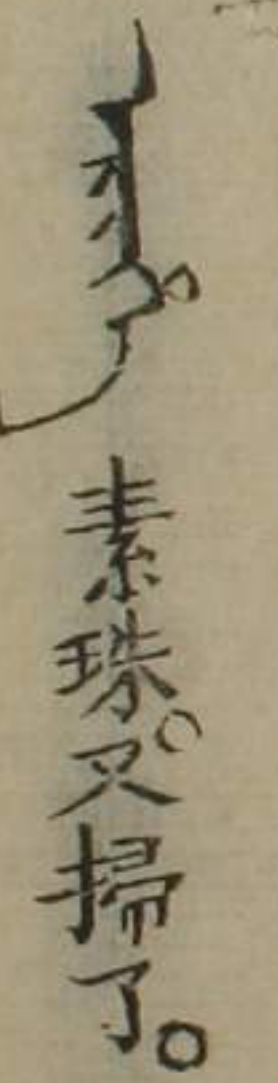 ᡝᡵᡳᡥᡝ 素珠。又掃了。